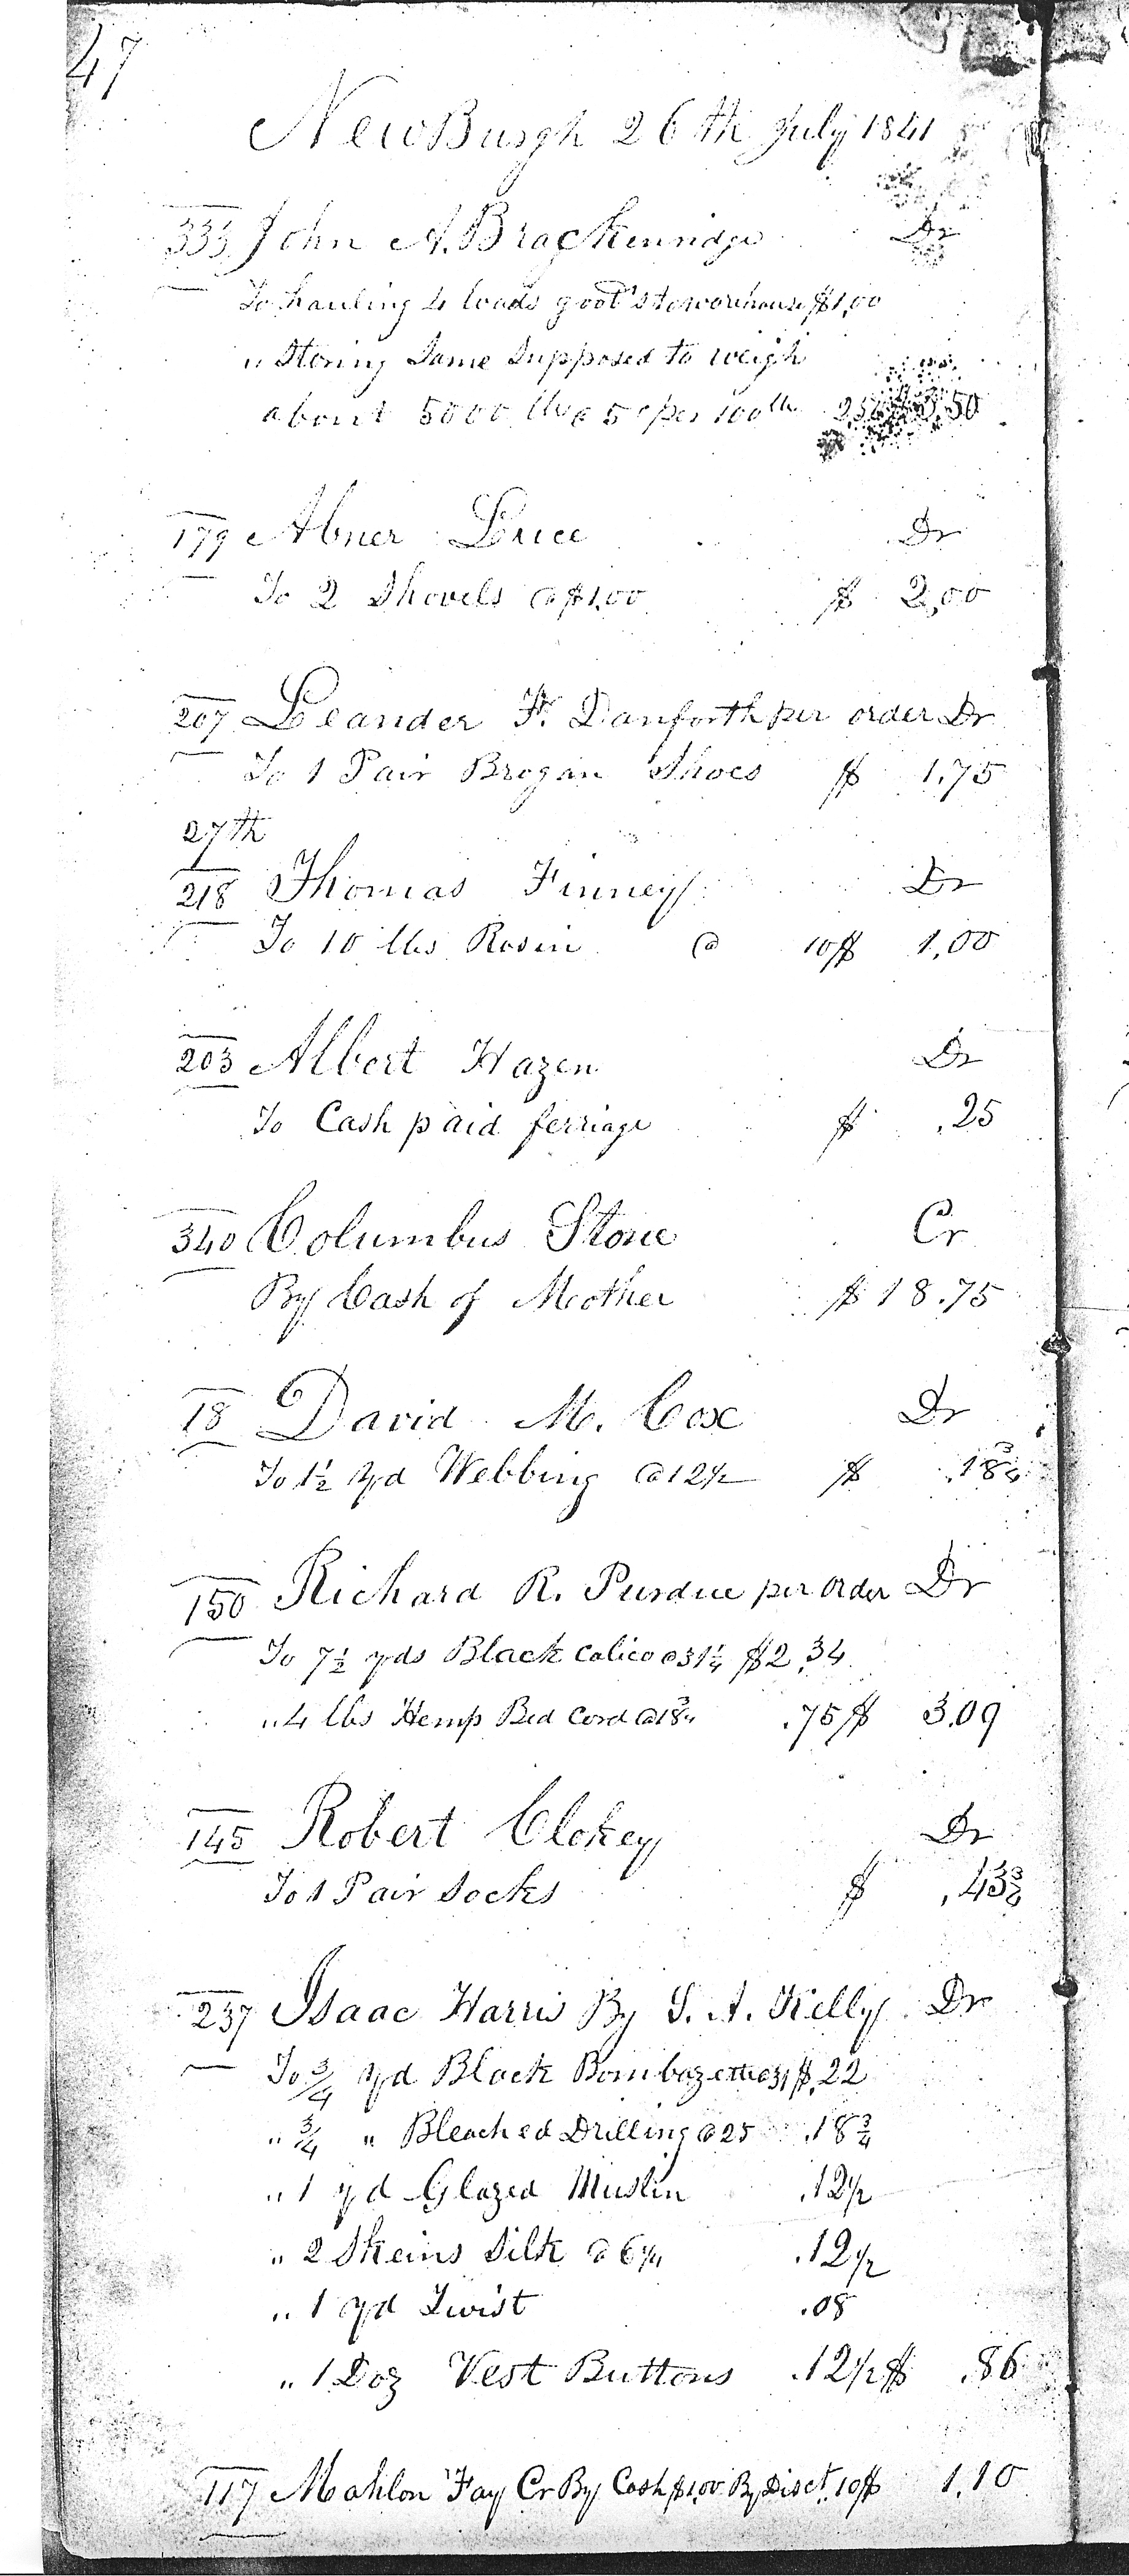 47
NewBurgh 26th July 1841
333 John A. Brackenridge Dr
To hauling 4 loads good's to warehouse $1,00
" Storing Same Supposed to weigh
about 5000 lbs @ 5c per 100 lbs 2,50 $ 3,50
179 Abner Luce Dr
To 2 Shovels @ $1,00 $ 2,00
207 Leander F. Danforth per order Dr
To 1 Pair Brogan Shoes $ 1.75
27th
218 Thomas Finney Dr
To 10 lbs Rosin @ 10 $ 1,00
203 Albert Hazen Dr
To Cash paid ferriage $ .25
340 Columbus Stone Cr
By Cash of Mother $ 18.75
18 David M. Cox Dr
To 1½ Yd Webbing @ 12½ $ .18¾
150 Richard R. Purdue per order Dr
To 7½ yds Black Calico @ 31¼ $2.34
" 4 lbs Hemp Bed Cord @ 18¾ .75 $ 3.09
145 Robert Clokey Dr
To 1 Pair Socks $ ,43¾
237 Isaac Harris By S. A. Kelly Dr
To ¾ Yd Black Bombazette @ 31 $.22
" ¾ " Bleached Drilling @ 25 .18¾
" 1 yd Glazed Muslin .12½
" 2 Skeins Silk @ 6¼ .12½
" 1 yd Twist .08
" 1 Doz Vest Buttons .12½ $ .86
117 Mahlon Fay Cr By Cash $1,00 By Disct. 10 $ 1.10